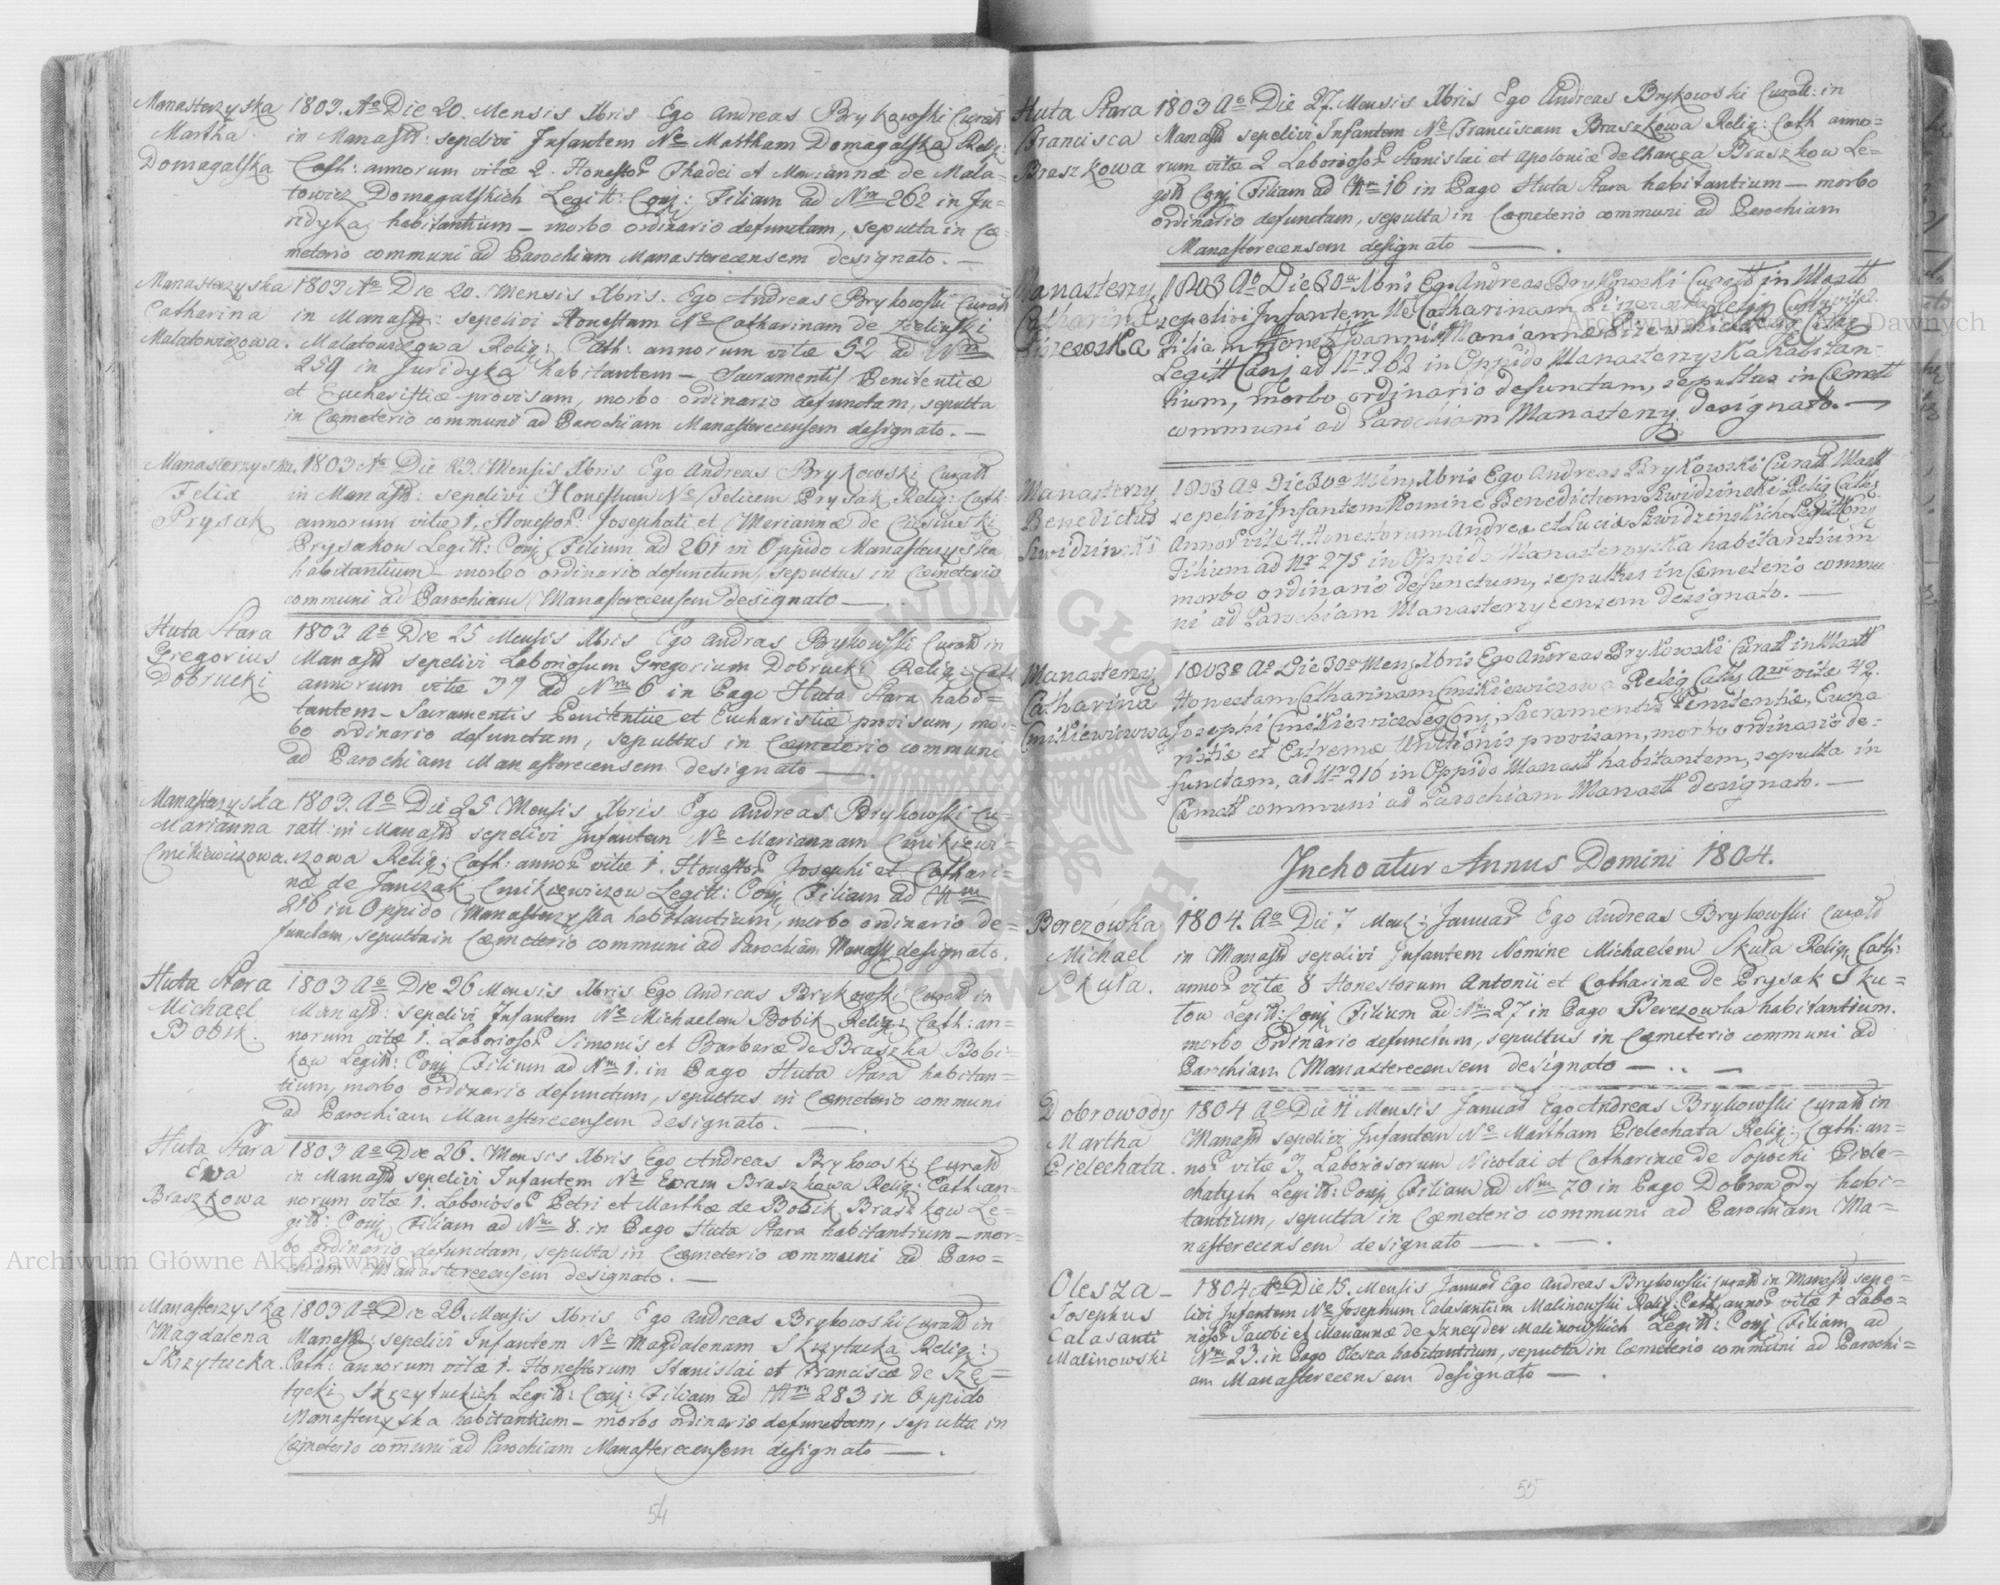 Manasterzyska
Martha
Domagalska
1803. Ao Die 20. Mensis Xbris Ego Andreas Brykowski Curatt
in Manast: sepelivi Infantem Ne Martham Domagalska Relig:
Cath: annorum vitæ 2. Honestor Thadei et Mariannæ de Mala-
towicz Domagalskich Legitt: Conj: Filiam ad Nm 262 in Ju-
ridyka habitantium – morbo ordinario defunctam, sepulta in Cœ-
meterio communi ad Parochiam Manasterecensem designato. –
Manasterzyska
Catharina
Malatowiczowa.
1803 Ao Die 20. Mensis Xbris. Ego Andreas Brykowski Curatt
in Manast: sepelivi Honestam Ne Catharinam de Zielinski
Malatowiczowa Relig: Cath: annorum vitæ 52 ad Nm
259 in Juridyka habitantem – Sacramentis Penitentiæ
et Eucharistiæ provisam, morbo ordinario defunctam, sepulta
in Cœmeterio communi ad Parochiam Manasterecensem designato. –
Manasterzyska
Felix
Prysak
1803 Ao Die 23. Mensis Xbris Ego Andreas Brykowski Curatt
in Manast: sepelivi Honestum Ne Felicem Prysak Relig: Cath:
annorum vitæ 1. Honestor: Josephati et Mariannæ de
Prysakow Legitt: Conj Filium ad 261 in Oppido Manasterzyska
habitantium – morbo ordinario defunctum, sepultus in Cœmeterio
communi ad Parochiam Manasterecensem designato –
Huta Stara
Gregorius
Dobrucki
1803 Ao Die 25 Mensis Xbris Ego Andras Brykowski Curatt in
Manast sepelivi Laboriosum Gregorium Dobrucki Relig: Cath
annorum vitæ 37 ad Nm 6 in Pago Huta Stara habi-
tantem – Sacramentis Penitentiæ et Eucharistiæ provisum, mor-
bo ordinario defunctum, sepultus in Cœmeterio communi
ad Parochiam Manasterecensem designato – .
Manasterzyska
Marianna
Cmikiewiczowa.
1803. Ao Die 25 Mensis Xbris Ego Andreas Brykowski Cu-
ratt: in Manast sepelivi Infantem Ne Mariannam Cmikiewi-
czowa Relig: Cath: annor vitæ 1. Honestor Josephi et Cathari-
næ de Janczak Cmikiewiczow Legitt: Conj Filiam ad Nm
216 in Oppido Manasterzyska habitantium, morbo ordinario de-
functam, sepulta in Cœmeterio communi ad Parochiam Manast designato.
Huta Stara
Michael
Bobik.
1803 Ao Die 26 Mensis Xbris Ego Andreas Brykowski Curatt in
Manast: sepelivi Infantem Ne Michaelem Bobik Relig: Cath: an-
norum vitæ 1. Laborior Simonis et Barbaræ de Braszka Bobi-
kow Legitt: Conj Filium ad Nm 1. in Pago Huta Stara habitan-
tium, morbo ordinario defunctum, sepultus in Cœmeterio communi
ad Parochiam Manasterecensem designato. – .
Huta Stara
Ewa
Braszkowa
1803 Ao Die 26. Mensis Xbris Ego Andreas Brykowski Curatt
in Manast sepelivi Infantem Ne Evam Braszkowa Relig: Cath: an-
norum vitæ 1. Laborior Petri et Marthæ de Bobik Braszkow Le-
gitt: Conj Filiam ad Nm 8. in Pago Huta Stara habitantium – mor-
bo ordinario defunctam, sepulta in Cœmeterio communi ad Paro-
chiam Manasterecensem designato. –
Manasterzyska
Magdalena
Skrzytucka.
1803 Ao Die 26. Mensis Xbris Ego Andreas Brykowski Curatt in
Manast: sepelivi Infantem Ne Magdalenam Skrzytucka Relig:
Cath: annorum vitæ 1. Honestorum Stanislai et Franciscæ de
Skrzytuckich Legitt: Conj: Filiam ad Nm 283 in Oppido
Manasterzyska habitantium – morbo ordinario defunctam, sepulta in
Cœmeterio communi ad Parochiam Manasterecensem designato – .
54
Huta Stara
Francisca
Braszkowa
1803 Ao Die 27. Mensis Xbris Ego Andreas Brykowski Curatt: in
Manast sepelivi Infantem Ne Franciscam Braszkowa Relig: Cath anno-
rum vitæ 2 Laborior Stanislai et Apoloniæ de Braszkow Le-
gitt Conj Filiam ad Nm 16 in Pago Huta Stara habitantium – morbo
ordinario defunctam, sepulta in Cœmeterio communi ad Parochiam
Manasterecensem designato – .
Manasterzy
Catharina
1803 Ao Die 30a Xbris Ego Andreas Brykowski Curatt in Mastt
sepelivi Infantem Ne Catharinam
Filiam Honest Joannis Mariannæ
Legitt Conj ad Nr 302 in Oppido Manasterzyska habitan-
tium, morbo ordinario defunctam, sepultus in Cœmett
communi ad Parochiam Manasterzy designato. –
Manasterzy
Benedictus
Szwidzinski
1803 Ao Die 30a Mens Xbris Ego Andreas Brykowski Curatt Mastt
sepelivi Infantem Nomine Benedictum Szwidzinski Relig Cath
Annor vitæ 4. Honestorum Andrea et Lucia Szwidzinskich Legitt Conj
Filium ad Nr 275 in Oppido Manasterzyska habitantium
morbo ordinario defunctum, sepultus in Cœmeterio commu
ni ad Parochiam Manasterzycensem designato. –
Manasterzy
Catharina
Cmikiewiczowa
1803o Ao Die 30a Mens Xbris Ego Andreas Brykowski Curatt in Mastt
Honestam Catharinam Cmikiewiczowa Relig Cath Aor vitæ 42.
Josephi Cmikiewicz Leg Conj, Sacramentis Penitentiæ, Eucha
ristiæ et Extremæ Unctionis provisam, morbo ordinario de-
functam, ad Nr 216 in Oppido Manast habitantem, sepulta in
Cœmett communi ad Parochiam Manastt designato. –
Inchoatur Annus Domini 1804.
Berezówka
Michael
Skuła.
1804. Ao Die 7 Mens: Januar Ego Andreas Brykowski Curatt
in Manast sepelivi Infantem Nomine Michaelem Skuła Relig Cath:
annor vitæ 8 Honestorum Antonii et Catharinæ de Prysak Sku-
tow Legitt: Conj Filium ad Nm 27 in Pago Berezowka habitantium.
morbo Ordinario defunctum, sepultus in Cœmeterio communi ad
Parochiam Manasterecensem designato – . . –
Dobrowody
Martha
Cielechata.
1804 Ao Die 11 Mensis Januar Ego Andreas Brykowski Curatt in
Manast sepelivi Infantem Ne Martham Cielechata Relig: Cath: an-
nor vitæ 3. Laboriosorum Nicolai et Catharinæ de Sopocki Ciele-
chatych Legitt: Conj Filiam ad Nm 70 in Pago Dobrowody habi-
tantium, sepulta in Cœmeterio communi ad Parochiam Ma-
nasterecensem designato – . – .
Olesza –
Josephus
Calasanti
Malinowski
1804 Ao Die 15. Mensis Januar Ego Andreas Brykowski Curatt in Manast sepe-
livi Infantem Ne Josephum Calasantium Malinowski Relig: Cath: annor vitæ 1 Labo-
rior Jacobi et Mariannæ de Szneyder Malinowskich Legitt: Conj Filium ad
Nm 23. in Pago Olesza habitantium, sepulta in Cœmeterio communi ad Parochi-
am Manasterecensem designato – .
55
Archiwum Główne Akt Dawnych
Archiwum Główne Akt Dawnych